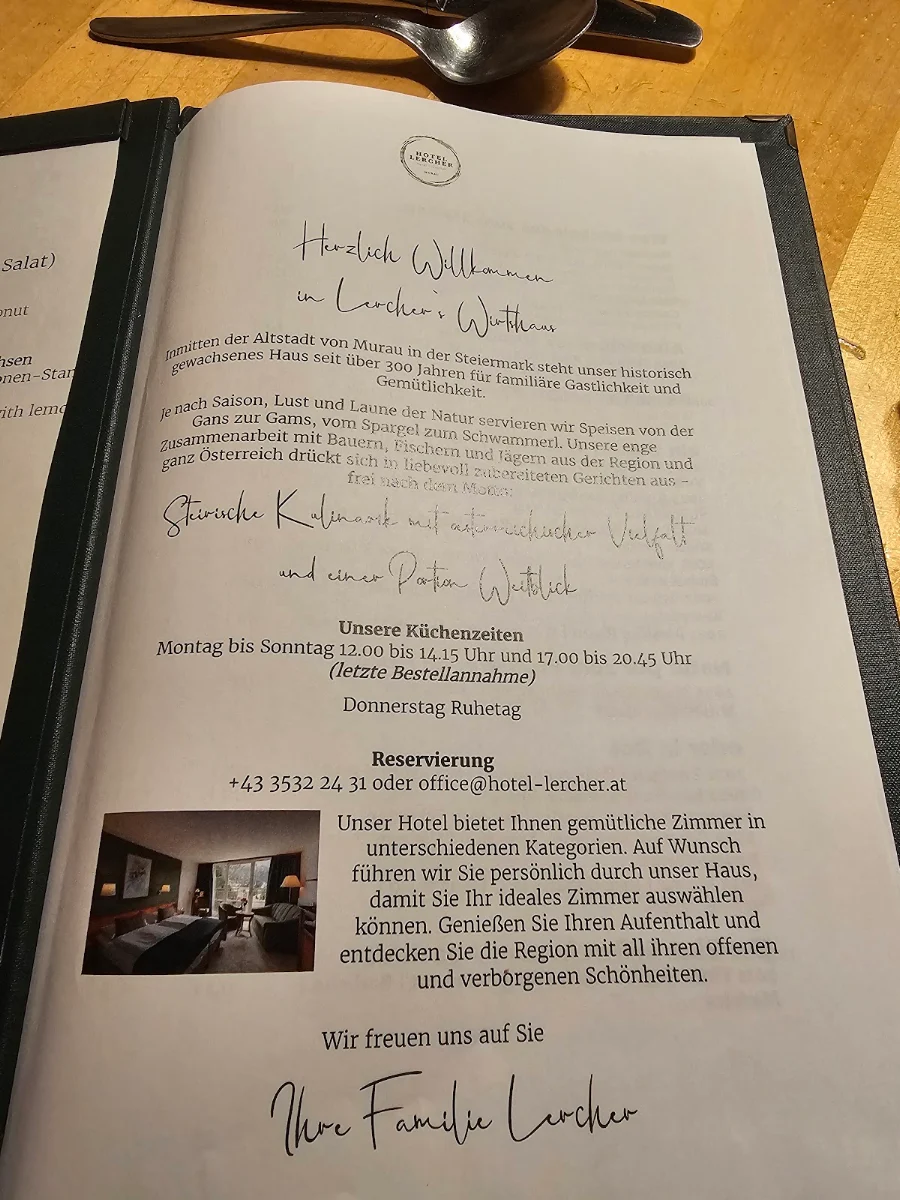 Salat)
onut
hsen
onen-Star
ith lemo
HOTEL
LERCHER
MURAU
Herzlich Willkommen
in Lercher's Wirtshaus
Inmitten der Altstadt von Murau in der Steiermark steht unser historisch
gewachsenes Haus seit über 300 Jahren für familiäre Gastlichkeit und
Gemütlichkeit.
Je nach Saison, Lust und Laune der Natur servieren wir Speisen von der
Gans zur Gams, vom Spargel zum Schwammerl. Unsere enge
Zusammenarbeit mit Bauern, Fischern und Jägern aus der Region und
ganz Österreich drückt sich in liebevoll zubereiteten Gerichten aus –
frei nach dem Motto:
Steirische Kulinarik mit österreichischer Vielfalt
und einer Portion Weitblick
Unsere Küchenzeiten
Montag bis Sonntag 12.00 bis 14.15 Uhr und 17.00 bis 20.45 Uhr
(letzte Bestellannahme)
Donnerstag Ruhetag
Reservierung
+43 3532 24 31 oder office@hotel-lercher.at
Unser Hotel bietet Ihnen gemütliche Zimmer in
unterschiedenen Kategorien. Auf Wunsch
führen wir Sie persönlich durch unser Haus,
damit Sie Ihr ideales Zimmer auswählen
können. Genießen Sie Ihren Aufenthalt und
entdecken Sie die Region mit all ihren offenen
und verborgenen Schönheiten.
Wir freuen uns auf Sie
Ihre Familie Lercher